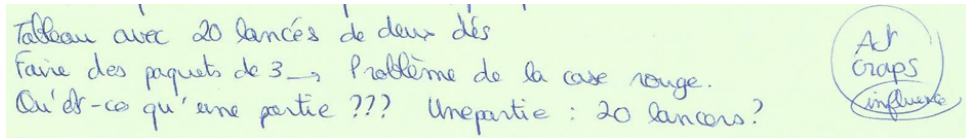 Tableau avec 20 lancés de deux dés
Faire des paquets de 3 → Problème de la case rouge.
Qu'est-ce qu'une partie ??? Une partie : 20 lancers ?
Act
Craps
influence